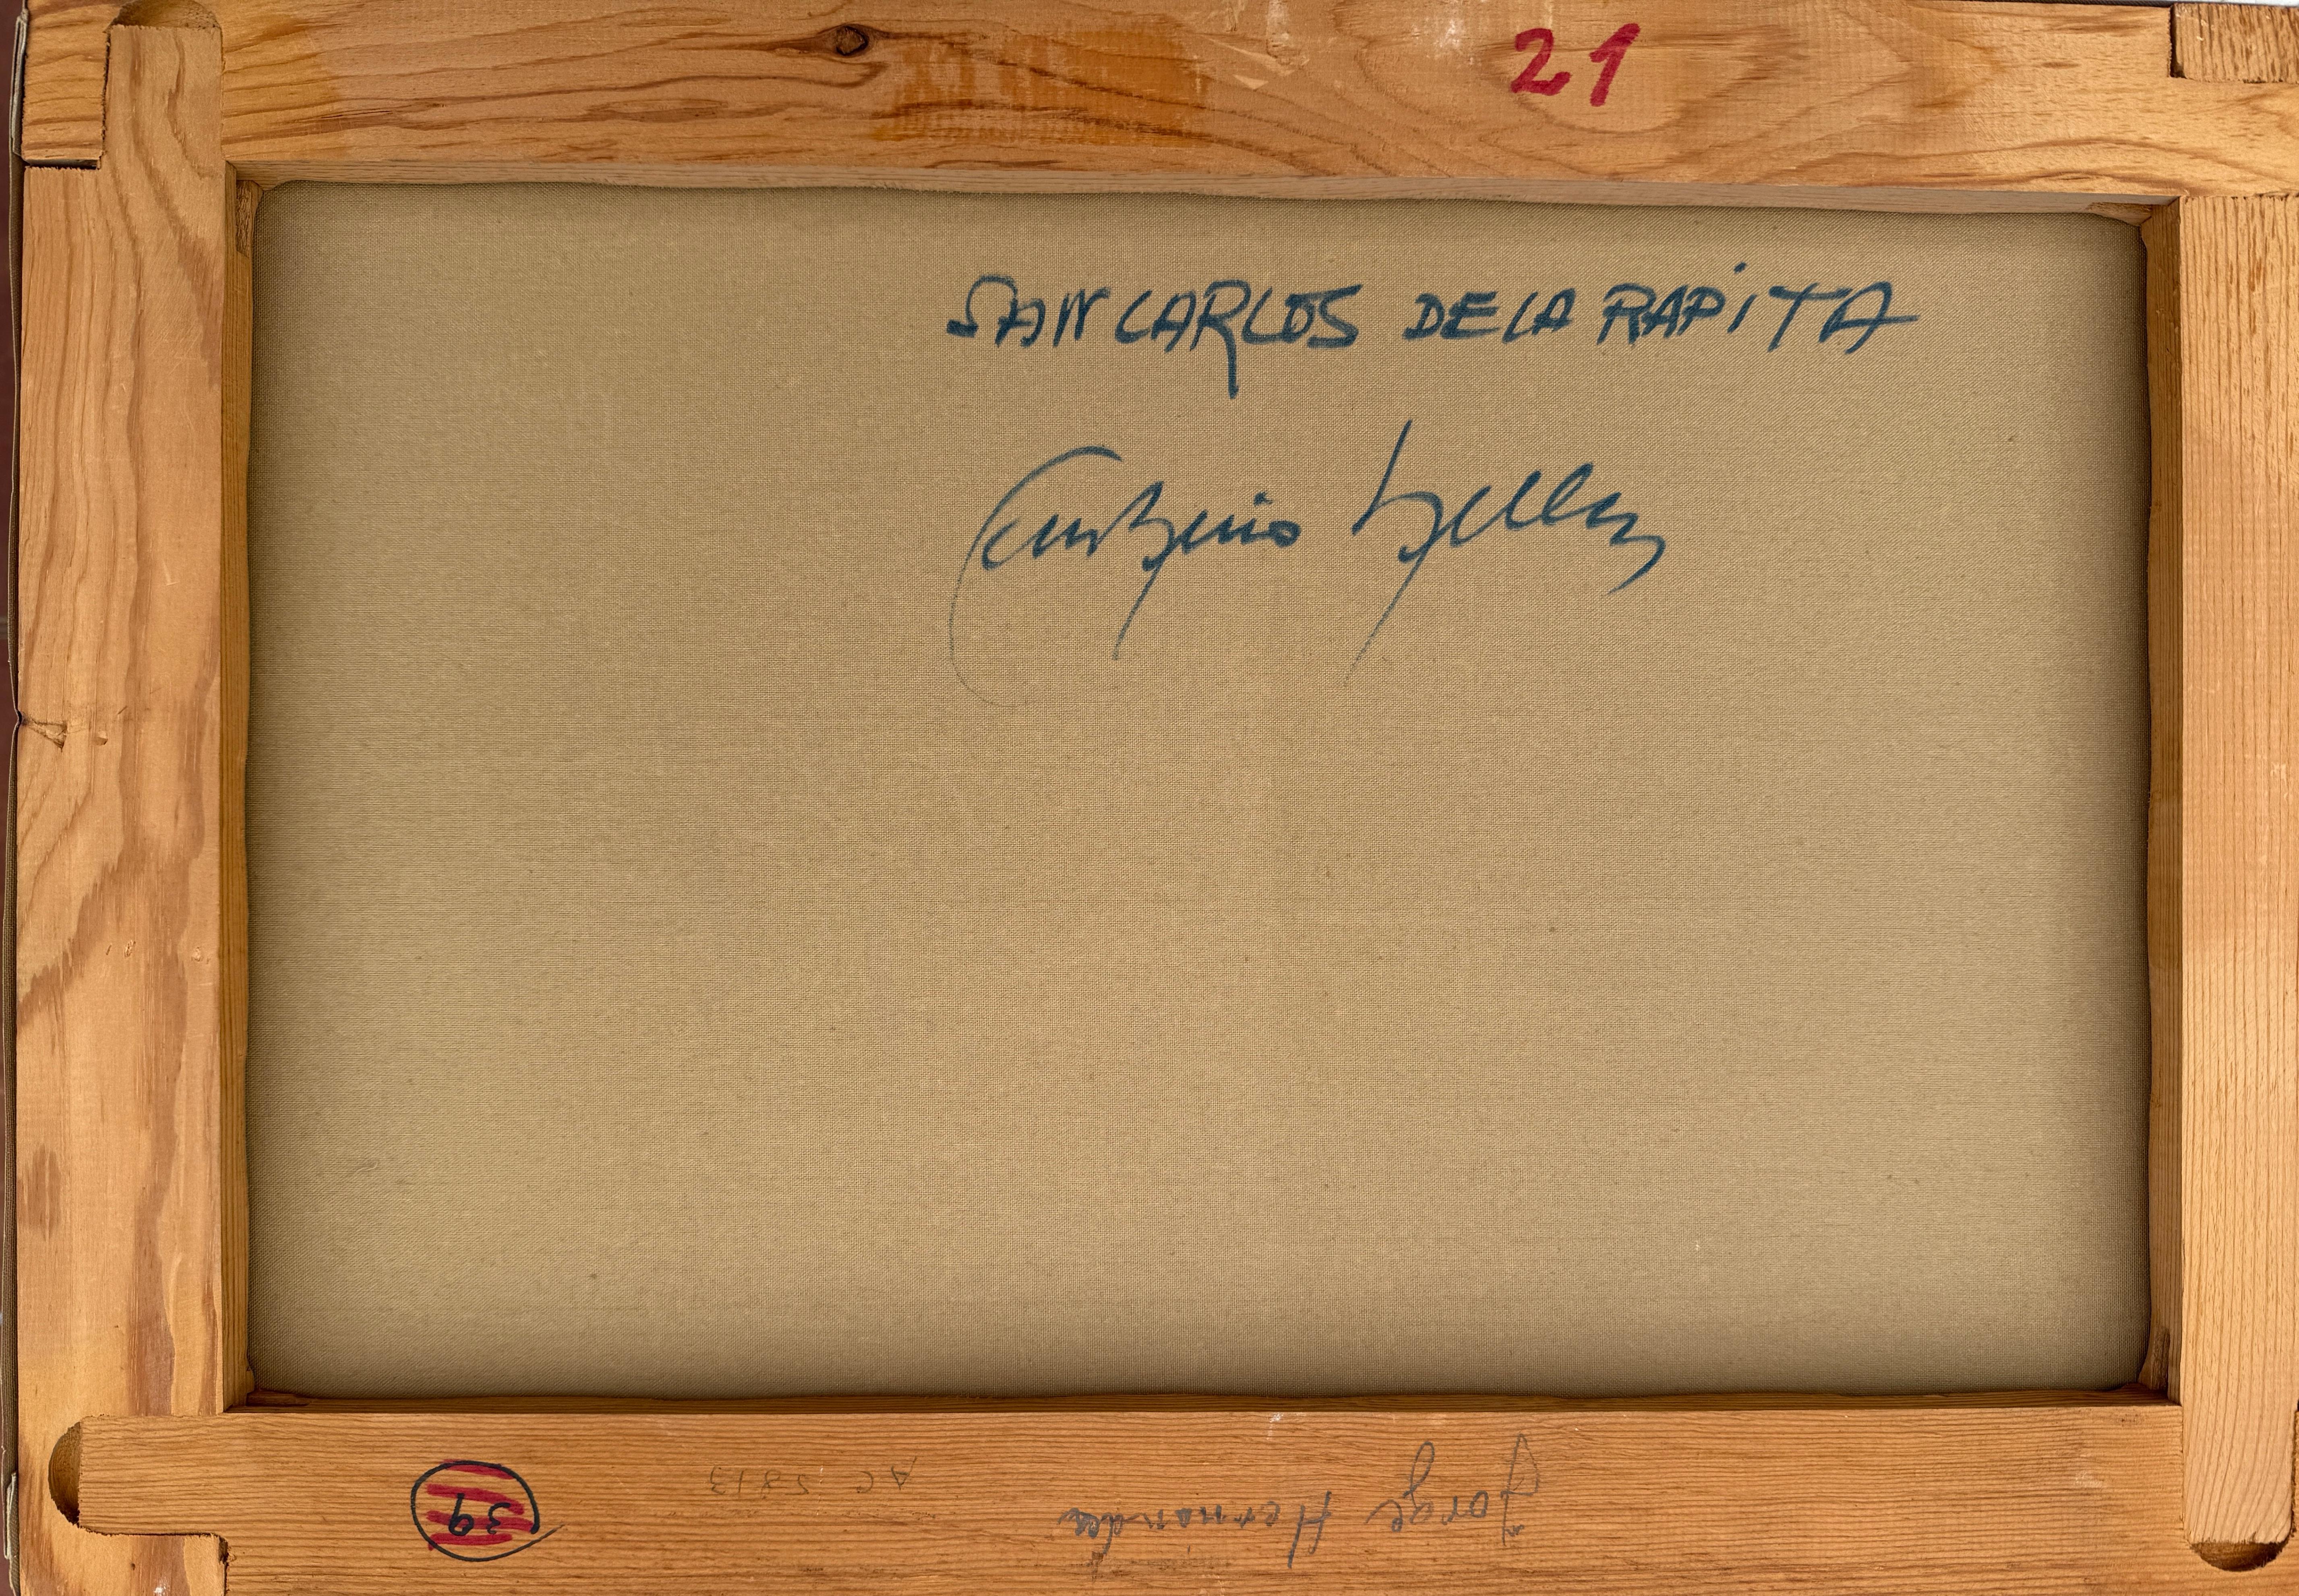 21
SAN CARLOS DE LA RAPITA
Jorge Hernandez
AC 5813
39